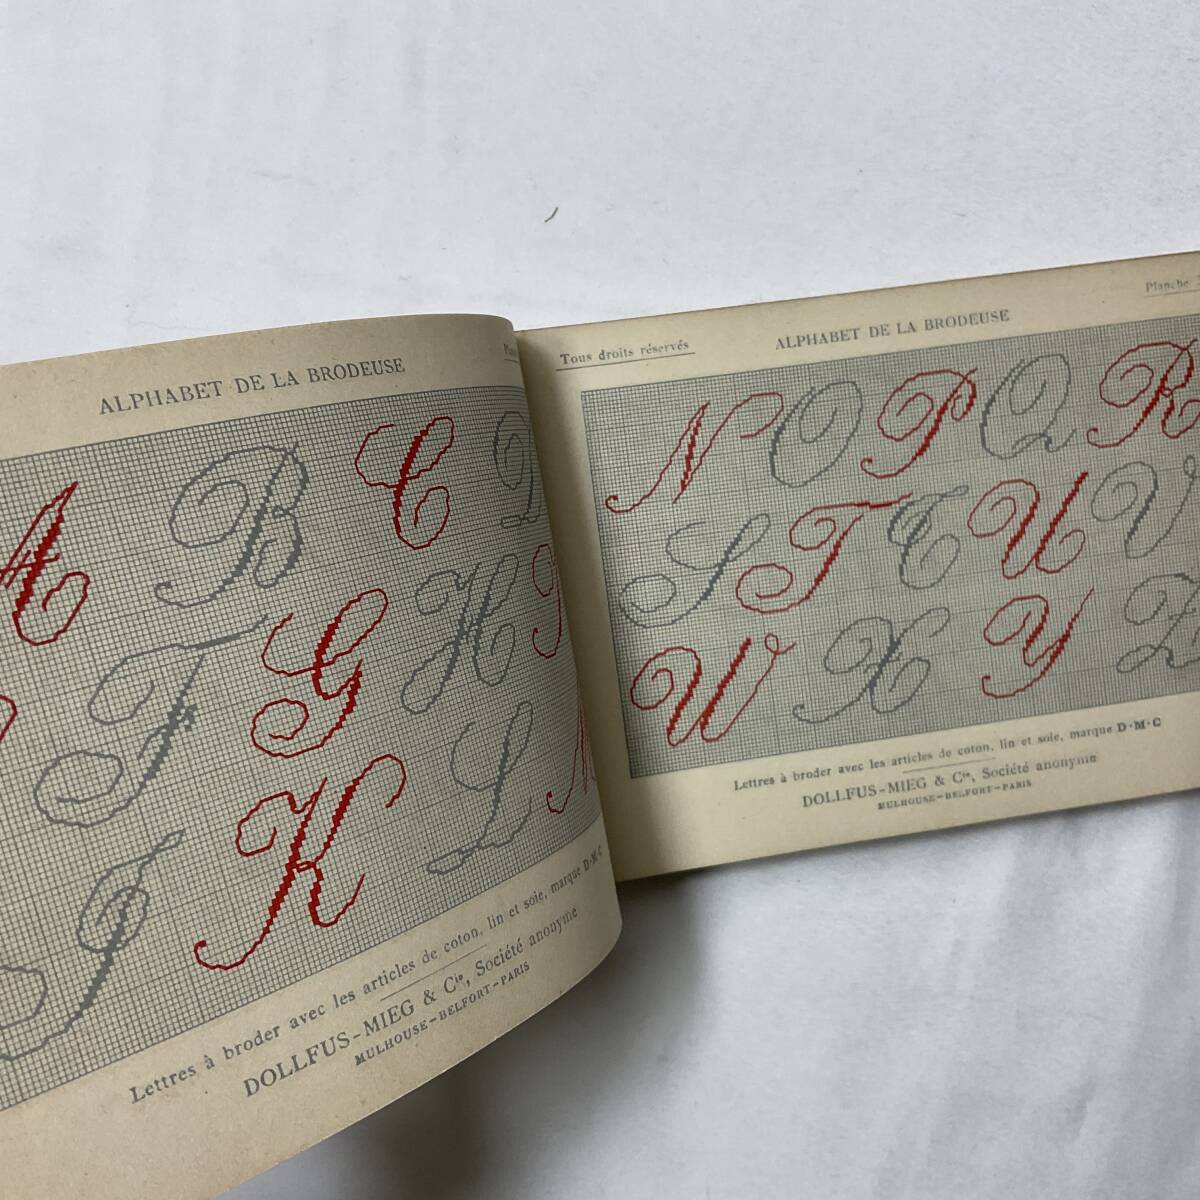 ALPHABET DE LA BRODEUSE
A B C D
F G H
J K L
Lettres à broder avec les articles de coton, lin et soie, marque D·M·C
DOLLFUS-MIEG & Cie, Société anonyme
MULHOUSE-BELFORT-PARIS
Tous droits réservés
ALPHABET DE LA BRODEUSE
Planche
N O P Q R
S T T U V
W X Y Z
Lettres à broder avec les articles de coton, lin et soie, marque D·M·C
DOLLFUS-MIEG & Cie, Société anonyme
MULHOUSE-BELFORT-PARIS